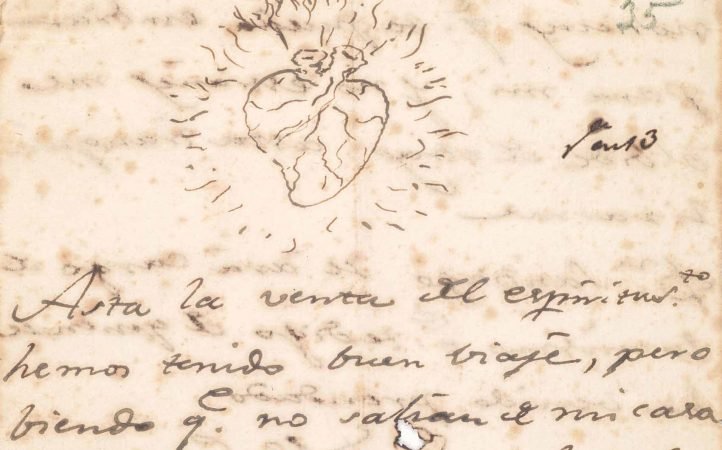 25
Asta la venta del espiritus.to
hemos tenido buen viaje, pero
biendo q.e no salian de mi casa